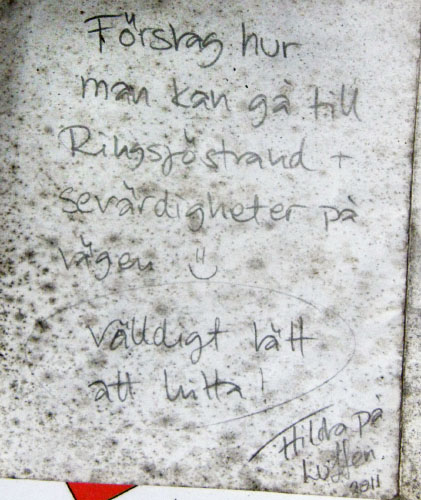 Förslag hur
man kan gå till
Ringsjöstrand +
sevärdigheter på
vägen
välldigt lätt
att hitta!
Hilda på
Luften
2011